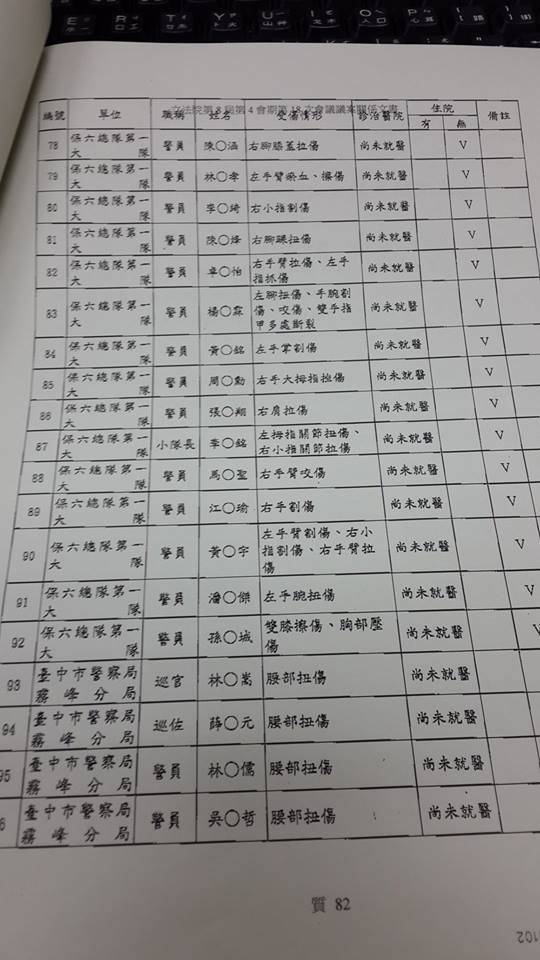 立法院第 8 屆第 4 會期第 18 次會議議案關係文書
編號 單位 職稱 姓名 受傷情形 診治醫院 住院 備註
有 無
78 保六總隊第一大隊 警員 陳○涵 右腳膝蓋拉傷 尚未就醫 V
79 保六總隊第一大隊 警員 林○孝 左手臂瘀血、擦傷 尚未就醫 V
80 保六總隊第一大隊 警員 李○綺 右小指割傷 尚未就醫 V
81 保六總隊第一大隊 警員 陳○烽 右腳踝扭傷 尚未就醫 V
82 保六總隊第一大隊 警員 卓○怡 右手臂拉傷、左手指抓傷 尚未就醫 V
83 保六總隊第一大隊 警員 楊○霖 左腳扭傷、手腕割傷、咬傷、雙手指甲多處斷裂 尚未就醫 V
84 保六總隊第一大隊 警員 黃○銘 左手掌割傷 尚未就醫 V
85 保六總隊第一大隊 警員 周○勳 右手大拇指挫傷 尚未就醫 V
86 保六總隊第一大隊 警員 張○翔 右肩拉傷 尚未就醫 V
87 保六總隊第一大隊 小隊長 李○銘 左拇指關節扭傷、右小指關節拉傷 尚未就醫 V
88 保六總隊第一大隊 警員 馬○聖 右手臂咬傷 尚未就醫 V
89 保六總隊第一大隊 警員 江○瑜 右手割傷 尚未就醫 V
90 保六總隊第一大隊 警員 黃○宇 左手臂割傷、右小指割傷、右手臂拉傷 尚未就醫 V
91 保六總隊第一大隊 警員 潘○傑 左手腕扭傷 尚未就醫 V
92 保六總隊第一大隊 警員 孫○城 雙膝擦傷、胸部壓傷 尚未就醫 V
93 臺中市警察局霧峰分局 巡官 林○嵩 腰部扭傷 尚未就醫
94 臺中市警察局霧峰分局 巡佐 薛○元 腰部扭傷 尚未就醫
95 臺中市警察局霧峰分局 警員 林○儒 腰部扭傷 尚未就醫
6 臺中市警察局霧峰分局 警員 吳○哲 腰部扭傷 尚未就醫
質 82